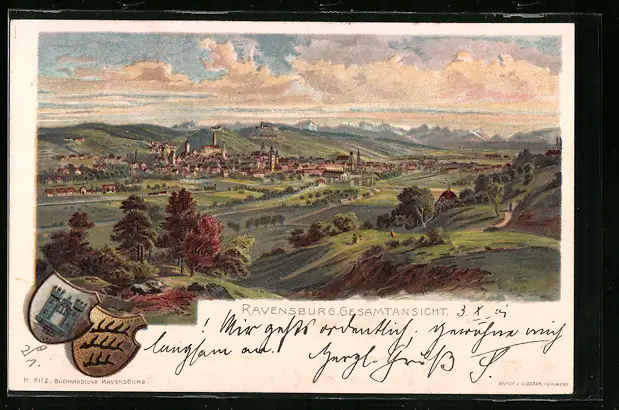 RAVENSBURG. GESAMTANSICHT. 3 X
! Mir gehts ordentlich, gewöhne mich
langsam an. Herzl. Gruß S.
H. KITZ, BUCHHANDLUNG RAVENSBURG